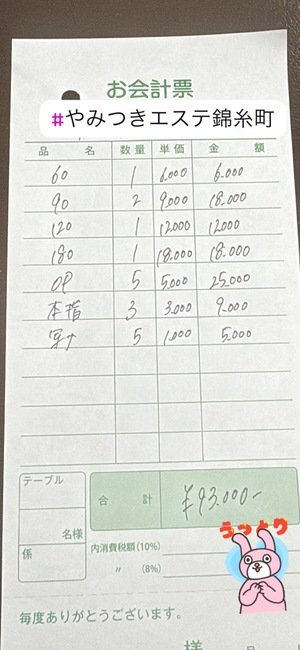 お会計票
#やみつきエステ錦糸町
品 名 数量 単価 金 額
60 1 6.000 6.000
90 2 9.000 18.000
120 1 12.000 12.000
180 1 18.000 18.000
OP 5 5.000 25.000
本指 3 3.000 9.000
写指 5 1.000 5.000
テーブル
合 計 ¥93.000-
名様
うっとり
係
内消費税額(10%)
〃 (8%)
毎度ありがとうございます。
様